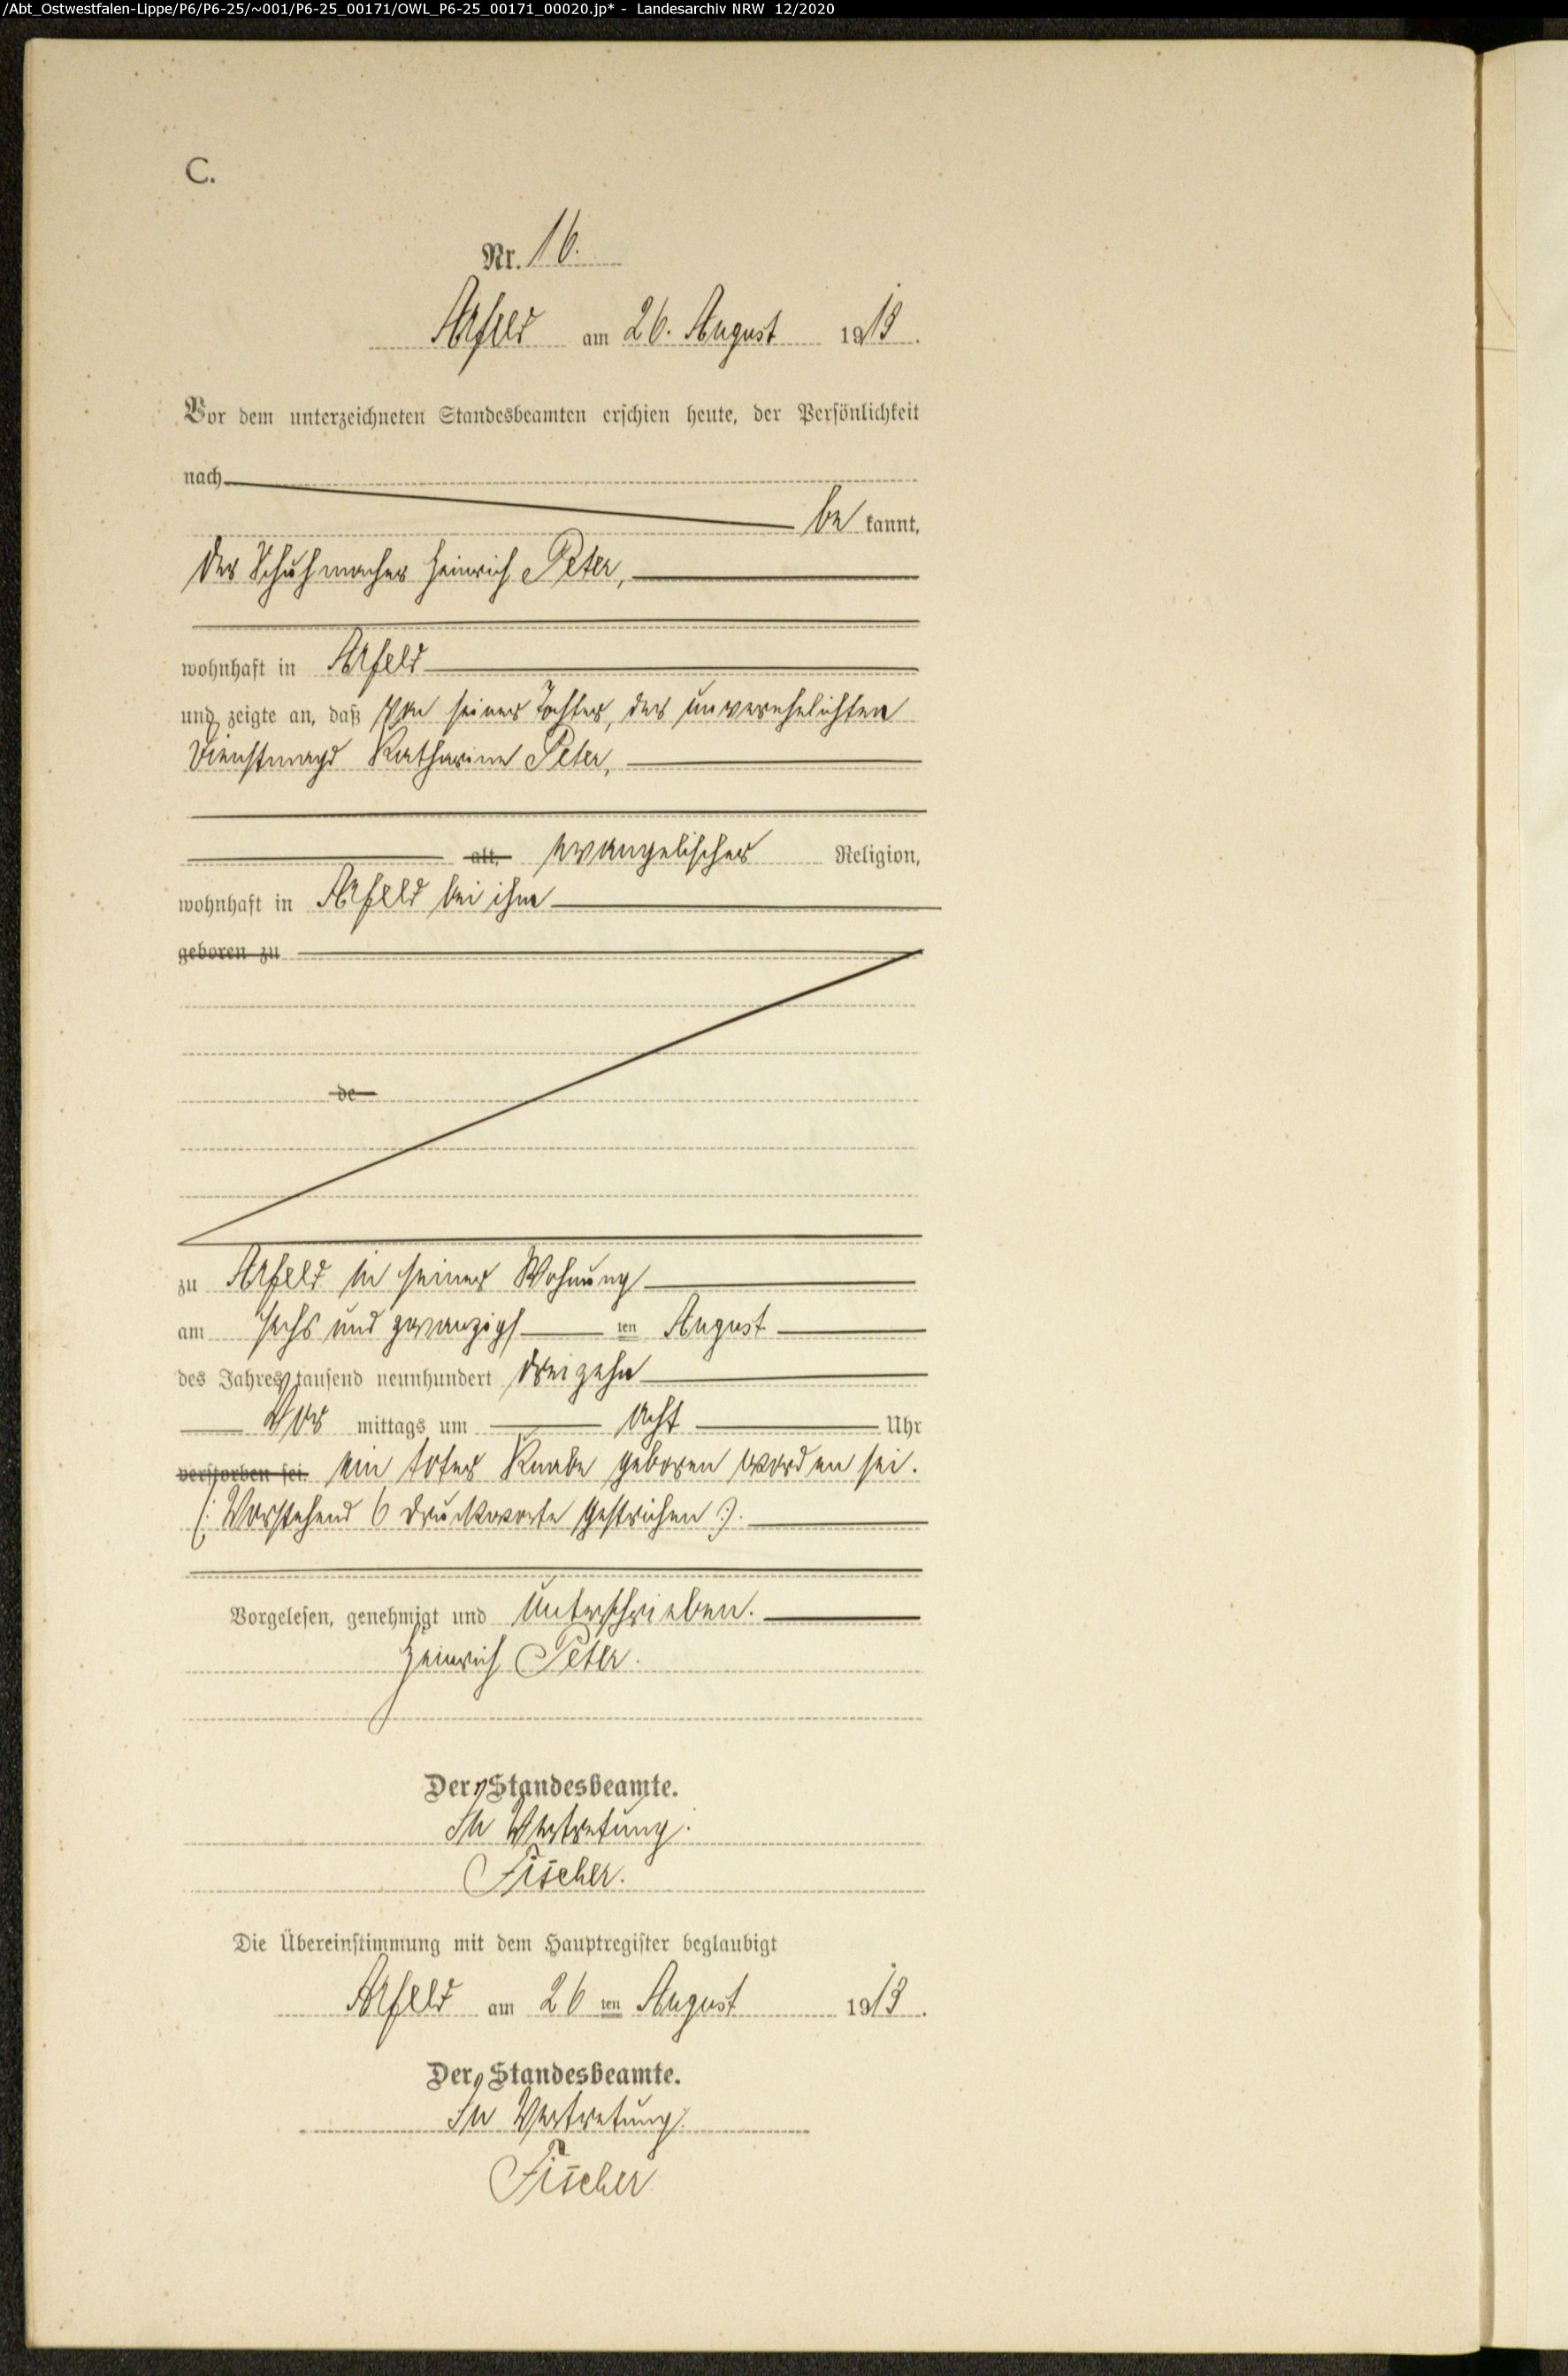 /Abt_Ostwestfalen-Lippe/P6/P6-25/~001/P6-25_00171/OWL_P6-25_00171_00020.jp* - Landesarchiv NRW 12/2020
C.
Nr. 16.
Arfeld am 26. August 1913.
Vor dem unterzeichneten Standesbeamten erschien heute, der Persönlichkeit
nach
be kannt,
der Schuhmacher Heinrich Peter,
wohnhaft in Arfeld
und zeigte an, daß von seiner Tochter, der unverehelichten
Dienstmagd Katharine Peter,
alt, evangelischer Religion,
wohnhaft in Arfeld bei ihm
geboren zu
de
zu Arfeld in seiner Wohnung
am sechs und zwanzigs ten August
des Jahres tausend neunhundert dreizehn
Vor mittags um acht Uhr
verstorben sei. ein toter Knabe geboren worden sei.
(: Vorstehend 6 Druckworte gestrichen :).
Vorgelesen, genehmigt und unterschrieben.
Heinrich Peter.
Der Standesbeamte.
In Vertretung.
Fischer.
Die Übereinstimmung mit dem Hauptregister beglaubigt
Arfeld am 26 ten August 1913.
Der Standesbeamte.
In Vertretung.
Fischer